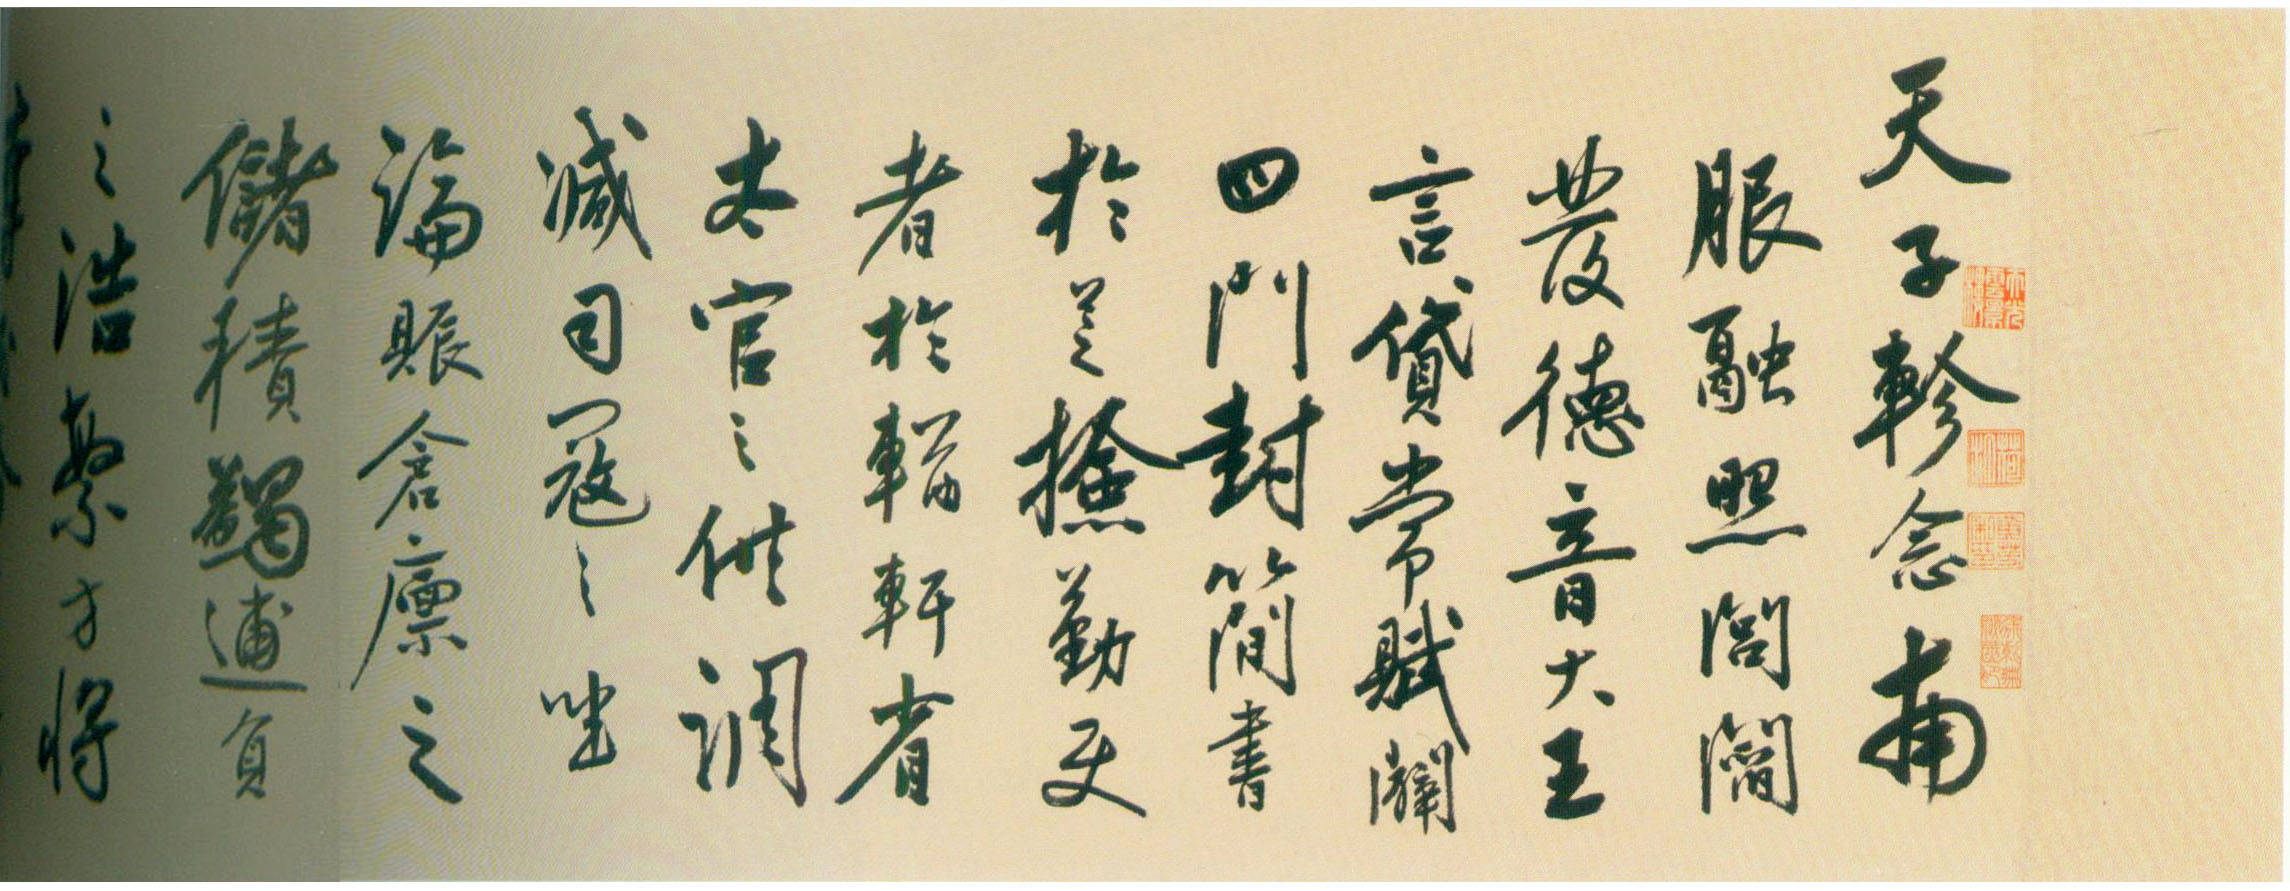 天子軫念南
服融照閭閻
發德音大王
言貸常賦闢
四門封簡書
於芝撿勤吏
者於輶軒省
太官之供調
減司寇之坐
論賑倉廩之
儲積蠲逋負
之浩繁方將